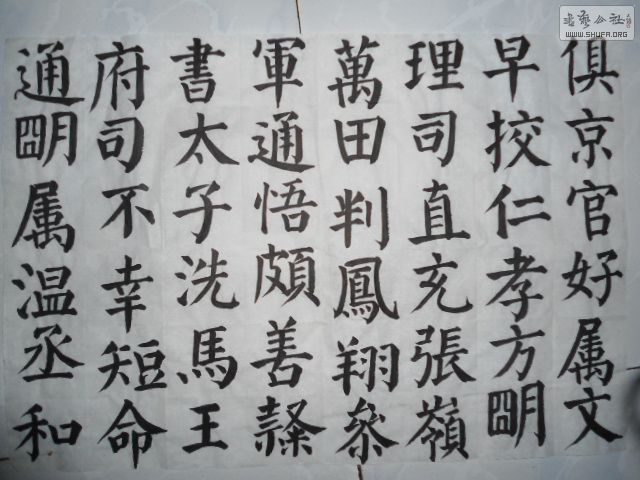 俱京官好属文
早挍仁孝方朙
理司直充張嶺
萬田判鳳翔叅
軍通悟頗善隸
書太子洗馬王
府司不幸短命
通朙属温丞和
书艺公社
WWW.SHUFA.ORG